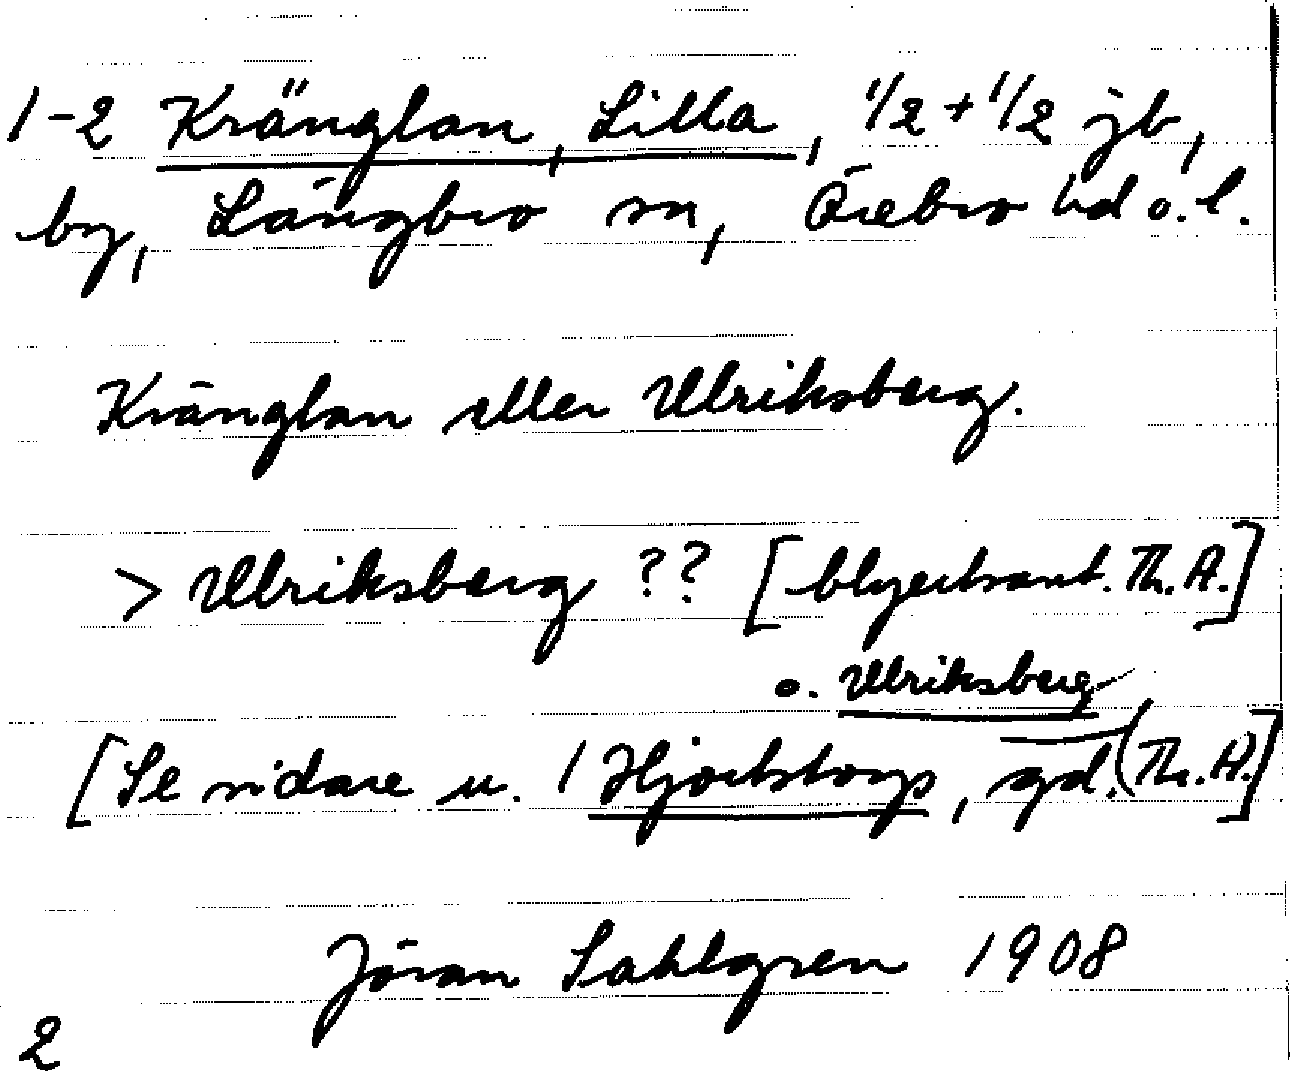 1-2 Kränglan, Lilla, 1/2 + 1/2 jb,
by, Längbro sn, Örebro hd o. l.
Kränglan eller Ulriksberg.
> Ulriksberg ?? [blyertsant. Th. A.]
o. Ulriksberg
[Se vidare u. 1 Hjortstorp, gd. (Th. A.)]
Jöran Sahlgren 1908
2